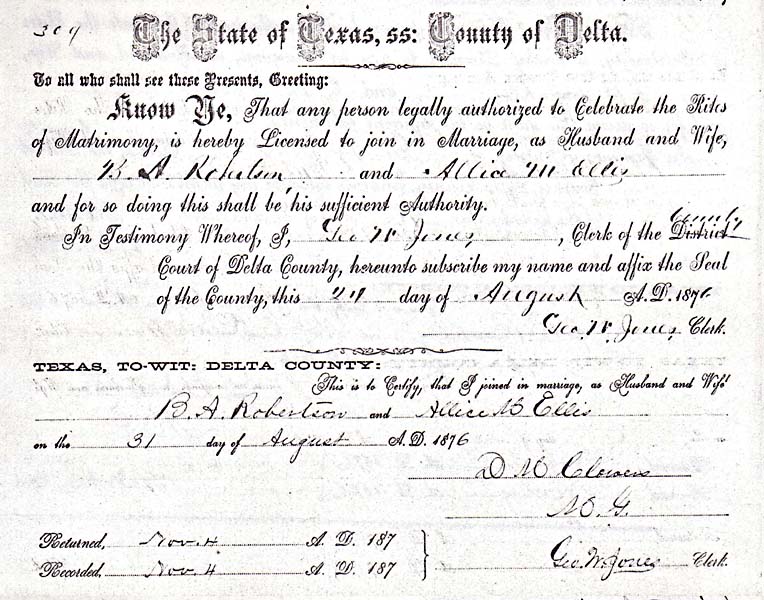 The State of Texas, ss: County of Delta.
To all who shall see these Presents, Greeting:
Know Ye, That any person legally authorized to Celebrate the Rites
of Matrimony, is hereby Licensed to join in Marriage, as Husband and Wife,
B A Robertson and Allice M Ellis
and for so doing this shall be his sufficient Authority.
County
In Testimony Whereof, I, Geo W Jones, Clerk of the District
Court of Delta County, hereunto subscribe my name and affix the Seal
of the County, this day of August A. D. 1876
Geo. W. Jones Clerk.
TEXAS, TO-WIT: DELTA COUNTY:
This is to Certify, that I joined in marriage, as Husband and Wife
B. A. Robertson and Allice M Ellis
on the 31 day of August A. D. 1876
D M
M. G.
Returned, Nov. 4 A. D. 187
Geo. W. Jones Clerk.
Recorded, Nov. 4 A. D. 187